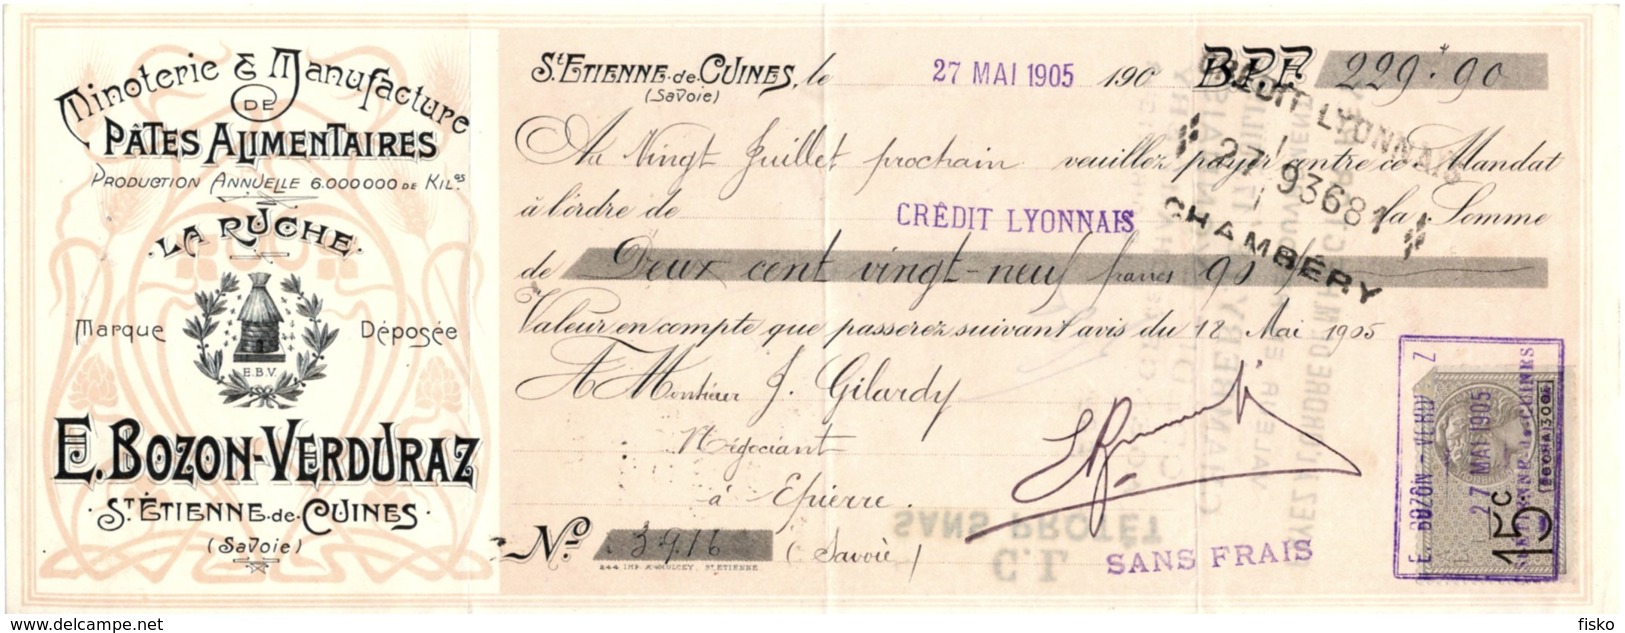 Minoterie & Manufacture
DE
PÂTES ALIMENTAIRES
PRODUCTION ANNUELLE 6.000000 DE KIL.os
LA RUCHE.
Marque Déposée
E.B.V.
E. BOZON-VERDURAZ
St ÉTIENNE-de-CUINES
(Savoie)
St ETIENNE-de-CUINES, le 27 MAI 1905 190 B.P.F. 229.90
(Savoie)
Au Vingt Juillet prochain veuillez payer contre ce Mandat
à l'ordre de CRÉDIT LYONNAIS la Somme
de Deux cent vingt-neuf francs 90
Valeur en compte que passerez suivant avis du 12 Mai 1905
A Monsieur J. Gilardy
Négociant
à Epierre.
No. 3916 (Savoie)
ST ETIENNE
CREDIT LYONNAIS
27 93681
CHAMBÉRY
SANS FRAIS
SANS PROTÊT
C.L
E. BOZON-VERDU Z
27 MAI 1905
15c
fisko
delcampe.net